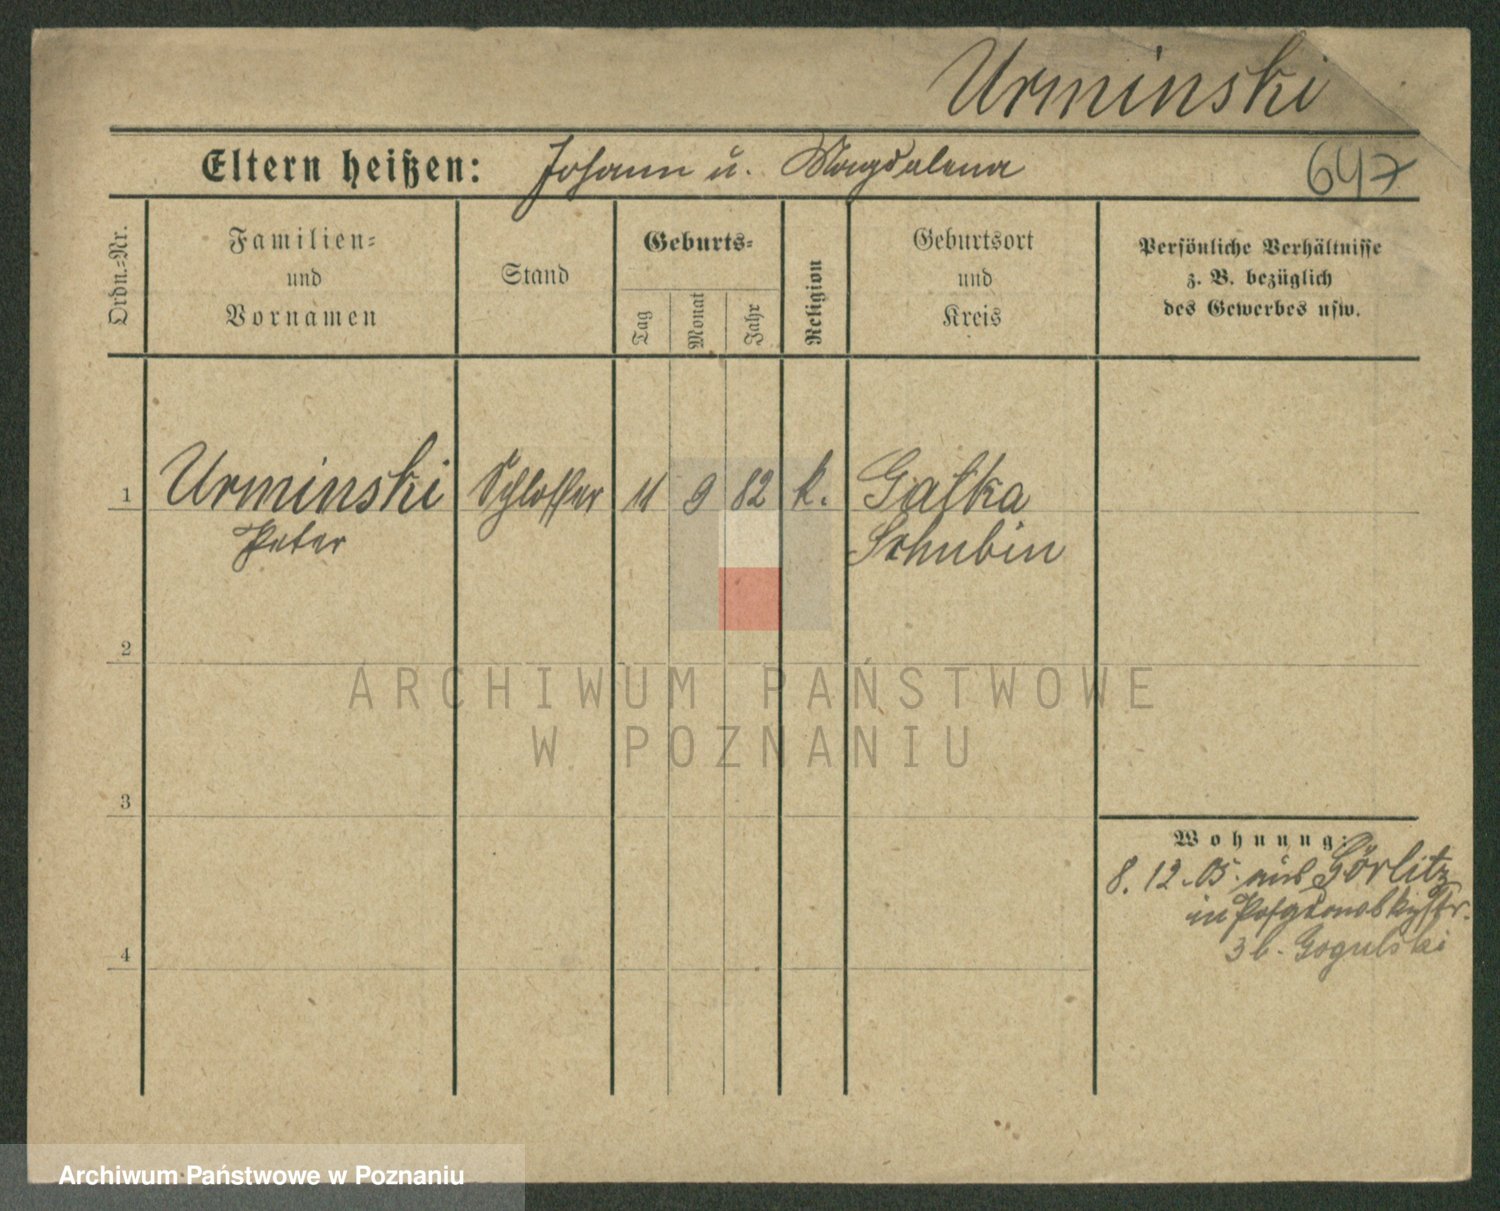 Urminski
Eltern heißen: Johann u. Magdalena
647
Ordn.-Nr.
Familien-
und
Vornamen
Stand
Geburts-
Tag
Monat
Jahr
Religion
Geburtsort
und
Kreis
Persönliche Verhältnisse
z. B. bezüglich
des Gewerbes usw.
1 Urminski Schlosser 11 9 82 k. Galka
Peter Schubin
2
3
4
Wohnung:
8. 12. 05. aus Görlitz
in
3 b. Gogulski
ARCHIWUM PAŃSTWOWE
W POZNANIU
Archiwum Państwowe w Poznaniu